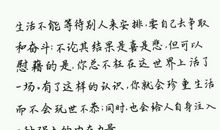 生活不能等待别人来安排,要自己去争取
和奋斗;不论其结果是喜是悲,但可以
慰藉的是,你总不枉在这世界上活了
一场。有了这样的认识,你就会珍重生活
而不会玩世不恭;同时,也会给人自身注入